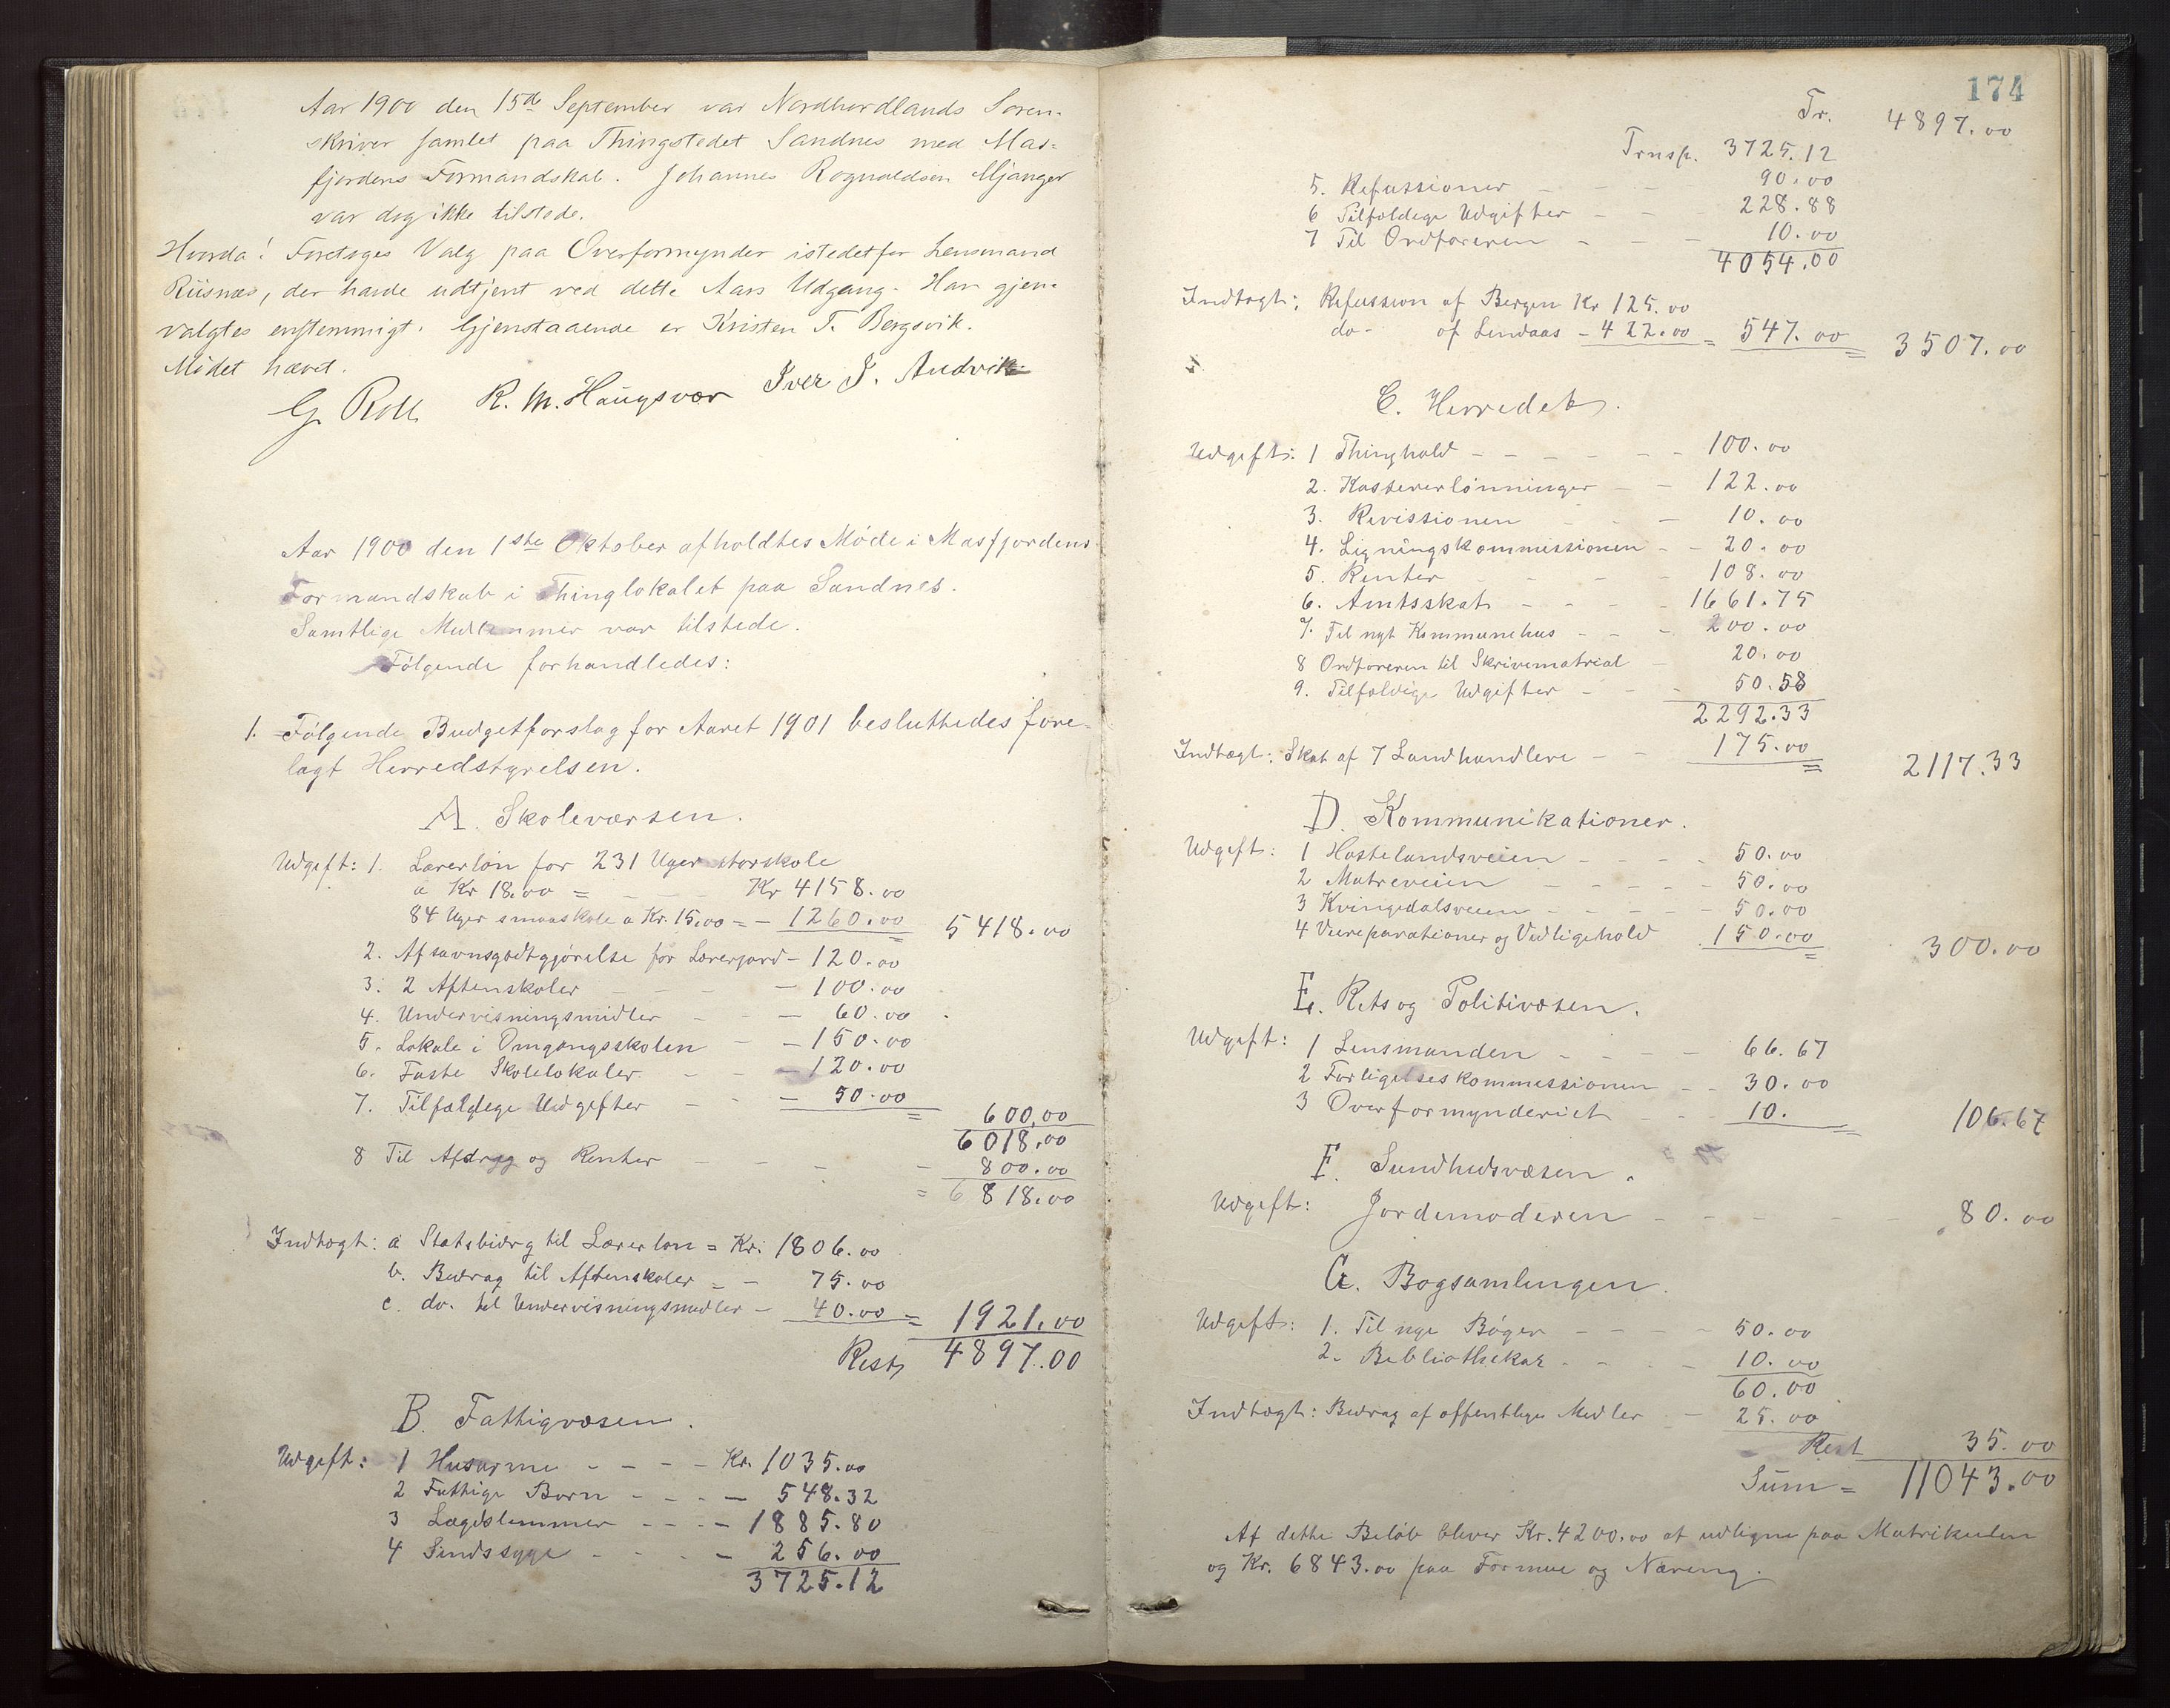 Aar 1900 den 15de September var Nordhordlands Soren-
skriver samlet paa Thingstedet Sandnes med Mas-
fjordens Formandskab. Johannes Rognaldsen Mjanger
var dog ikke tilstede.
Hvorda! Foretoges Valg paa Overformynder istedetfor Lensmand
Riisnæs, der havde udtjent ved dette Aars Udgang. Han gjen-
valgtes enstemmigt. Gjenstaaende er Kristen T. Bergsvik.
Mödet hævet.
G. Roll R. M. Haugsvær Iver J. Andvik
Aar 1900 den 1ste Oktober afholdtes Møde i Masfjordens
Formandskab i Thinglokalet paa Sandnes.
Samtlige Medlemmer var tilstede.
Følgende forhandledes:
1. Følgende Budgetforslag for Aaret 1901 besluttedes fore-
lagt Herredstyrelsen.
A. Skolevæsen.
Udgift: 1. Lærerløn for 231 Uger storskole
a Kr 18.00 = Kr 4158.00
84 Uger smaaskole a Kr. 15.00 = - 1260.00 = 5418.00
2. Afsavnsgodtgjørelse for Lærerjord - 120.00
3. 2 Aftenskoler - 100.00
4. Undervisningsmidler - - - 60.00
5. Lokale i Omgangsskolen - - 150.00
6. Faste Skolelokaler - - - 120.00
7. Tilfældige Udgifter - - - 50.00 = 600.00
6018.00
8 Til Afdrag og Renter - - - - 800.00
= 6818.00
Indtægt: a Statsbidrag til Lærerløn = Kr. 1806.00
b. Bidrag til Aftenskoler = - 75.00
c. do. til Undervisningsmidler - 40.00 = 1921.00
Rest 4897.00
B. Fattigvæsen.
Udgift: 1 Husarme - - - - Kr. 1035.00
2 Fattige Børn - - - - 548.32
3 Lægdslemmer - - - - 1885.80
4 Sindssyge - - - - 256.00
3725.12
174
Tr. 4897.00
Trnsp. 3725.12
5. Refussioner - - - 90.00
6 Tilfældige Udgifter - - - 228.88
7 Til Ordføreren - - - 10.00
4054.00
Indtægt: Refussion af Bergen Kr 125.00
do - af Lindaas - 422.00 = 547.00 = 3507.00
C. Herredet.
Udgift: 1 Thinghold - - - - - - 100.00
2. Kassererlønninger - - 122.00
3. Revissionen - - - 10.00
4. Ligningskommissionen - - 20.00
5. Renter - - - - 108.00
6. Amtsskat - - - - 1661.75
7. Til nyt Kommunehus - - - 200.00
8 Ordføreren til Skrivematrial - 20.00
9. Tilfældige Udgifter - - - 50.58
2292.33
Indtægt: Skat af 7 Landhandlere - - 175.00 = 2117.33
D. Kommunikationer.
Udgift: 1 Hostelandsveien - - - - 50.00
2 Matreveien - - - - - 50.00
3 Kvingedalsveien - - - - - 50.00
4 Veireparationer og Vedligehold 150.00 = 300.00
E. Rets og Politivæsen.
Udgift: 1 Lensmanden - - - - 66.67
2 Forligelseskommissionen - - 30.00
3 Overformynderiet - - - 10. = 106.67
F. Sundhedsvæsen.
Udgift: Jordemoderen - - - - - 80.00
G. Bogsamlingen.
Udgift: 1. Til nye Bøger - - - - 50.00
2. Bibliothekar - - - - 10.00
60.00
Indtægt: Bidrag af offentlige Midler - 25.00
Rest 35.00
Sum = 11043.00
Af dette Beløb bliver Kr. 4200.00 at udligne paa Matrikulen
og Kr. 6843.00 paa Formue og Næring.